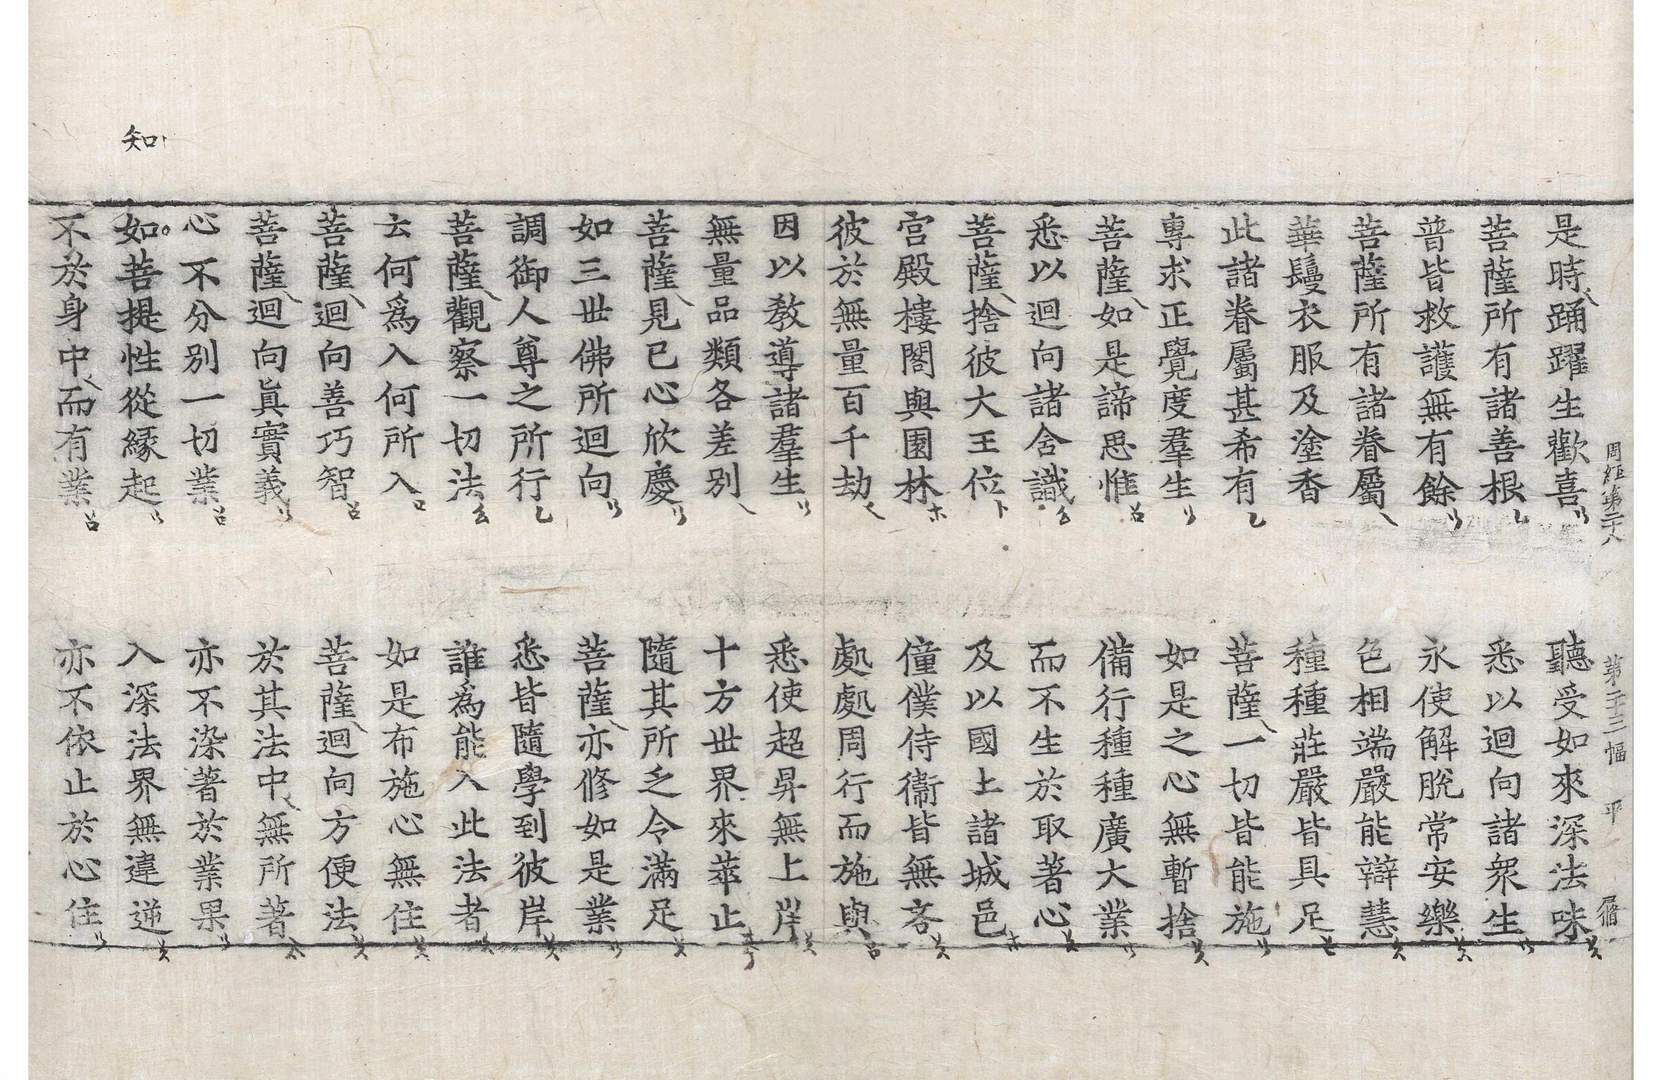 周經第二十八 第二十三幅 平
是時踊躍生歡喜 聽受如來深法味
菩薩所有諸善根 悉以迴向諸衆生
普皆救護無有餘 永使解脫常安樂
菩薩所有諸眷屬 色相端嚴能辯慧
華鬘衣服及塗香 種種莊嚴皆具足
此諸眷屬甚希有 菩薩一切皆能施
專求正覺度羣生 如是之心無暫捨
菩薩如是諦思惟 備行種種廣大業
悉以迴向諸含識 而不生於取著心
菩薩捨彼大王位 及以國土諸城邑
宮殿樓閣與園林 僮僕侍衛皆無吝
彼於無量百千劫 處處周行而施與
因以教導諸羣生 悉使超昇無上岸
無量品類各差別 十方世界來萃止
菩薩見已心欣慶 隨其所乏令滿足
如三世佛所迴向 菩薩亦修如是業
調御人尊之所行 悉皆隨學到彼岸
菩薩觀察一切法 誰爲能入此法者
云何爲入何所入 如是布施心無住
菩薩迴向善巧智 菩薩迴向方便法
菩薩迴向眞實義 於其法中無所著
心不分別一切業 亦不染著於業果
知
如菩提性從緣起 入深法界無違逆
不於身中而有業 亦不依止於心住